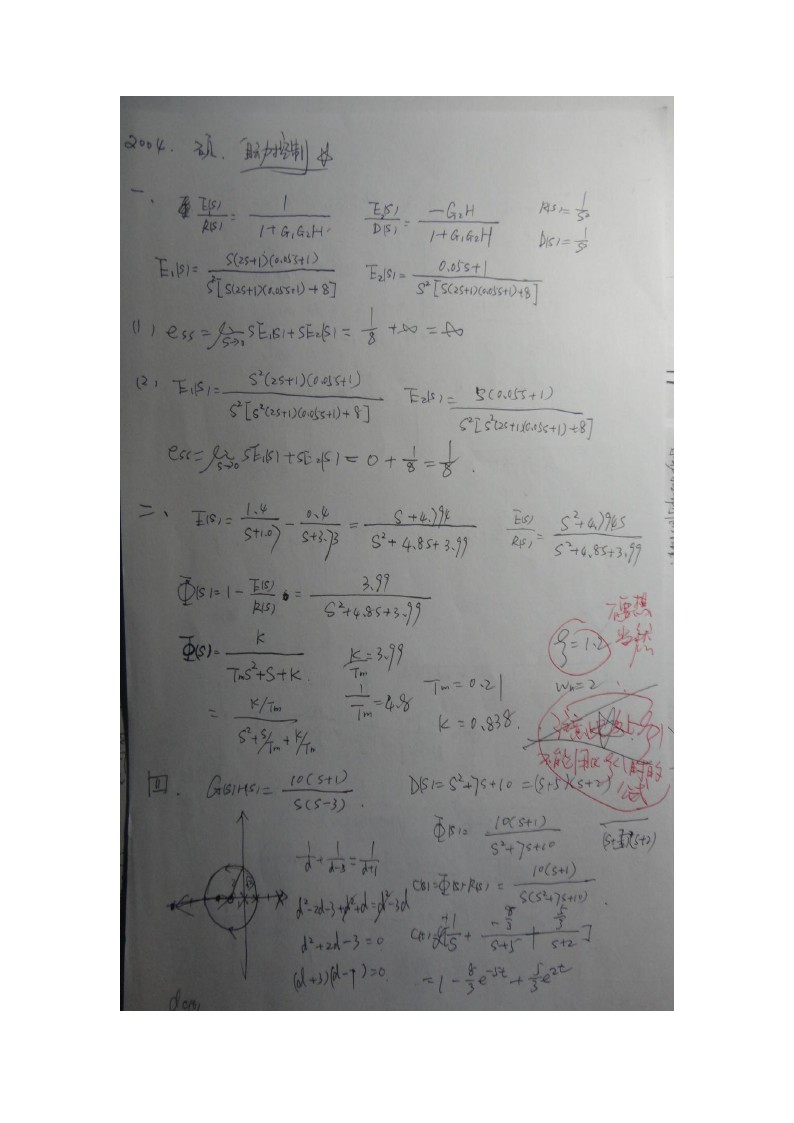 2004. 硕. 自动控制 ☆
一、 Φ E(s)/R(s) = 1/(1+G₁G₂H) E(s)/D(s) = -G₂H/(1+G₁G₂H) R(s) = 1/s²
D(s) = 1/s
E₁(s) = s(2s+1)(0.05s+1)/s²[s(2s+1)(0.05s+1)+8] E₂(s) = 0.05s+1/s²[s(2s+1)(0.05s+1)+8]
(1) ess = lim s→0 sE₁(s)+sE₂(s) = 1/8 + ∞ = ∞
(2) E₁(s) = s²(2s+1)(0.05s+1)/s²[s²(2s+1)(0.05s+1)+8] E₂(s) = s(0.05s+1)/s²[s²(2s+1)(0.05s+1)+8]
ess = lim s→0 sE₁(s)+sE₂(s) = 0 + 1/8 = 1/8.
二、 E(s) = 1.4/(s+1.07) - 0.4/(s+3.73) = (s+4.794)/(s²+4.8s+3.99) E(s)/R(s) = (s²+4.794s)/(s²+4.8s+3.99)
Φ(s) = 1 - E(s)/R(s) = 3.99/(s²+4.8s+3.99)
ξ=1.2
Φ(s) = K/(Tms²+s+K) K/Tm = 3.99
Tm = 0.21 Wn=2
= K/Tm/(s²+s/Tm+K/Tm) 1/Tm = 4.8 K = 0.838.
四. G(s)H(s) = 10(s+1)/s(s-3). D(s) = s²+7s+10 = (s+5)(s+2)
Φ(s) = 10(s+1)/(s²+7s+10) (s+5)(s+2)
1/d + 1/(d-3) = 1/(d+1)
C(s) = Φ(s)·R(s) = 10(s+1)/s(s²+7s+10).
d²-2d-3+d²+d = d²-3d
d²+2d-3=0 +1/s + -8/3/(s+5) + 5/3/(s+2)]
(d+3)(d-1)=0. = 1 - 8/3 e^-5t + 5/3 e^2t